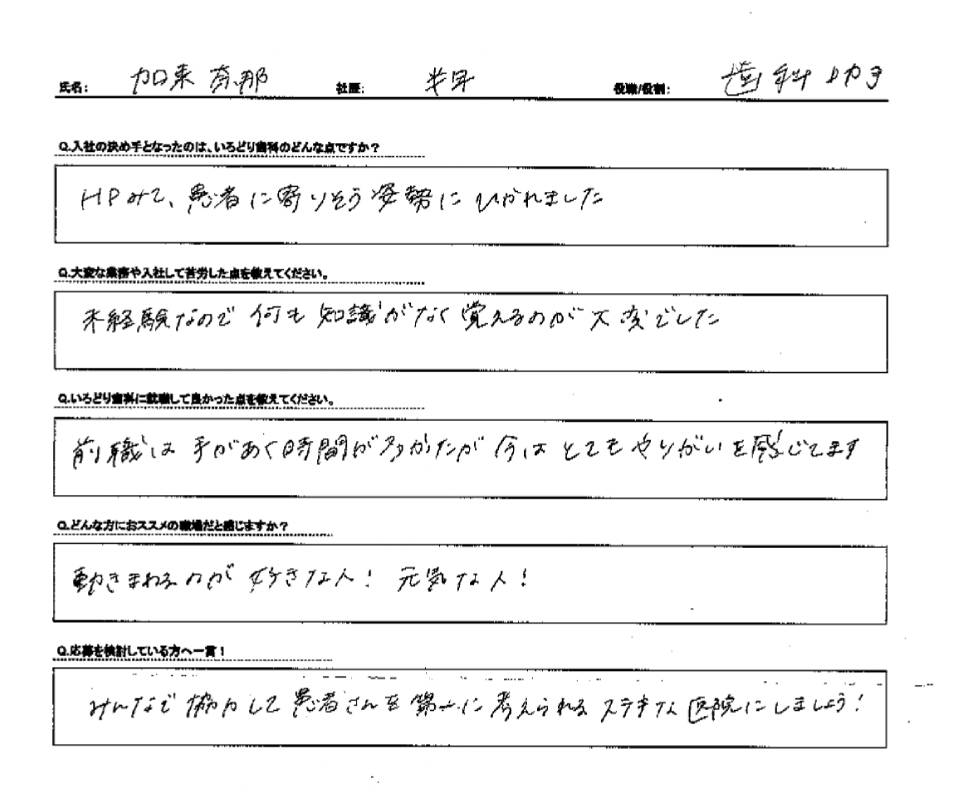 氏名: 加来 斉那 社歴: 半年 役職/役割: 歯科助手
Q.入社の決め手となったのは、いろどり歯科のどんな点ですか？
HPみて、患者に寄りそう姿勢にひかれました
Q.大変な業務や入社して苦労した点を教えてください。
未経験なので何も知識がなく覚えるのが大変でした
Q.いろどり歯科に就職して良かった点を教えてください。
前職は手があく時間が多かたが今はとてもやりがいを感じてます
Q.どんな方におススメの職場だと感じますか？
動きまわるのが好きな人！元気な人！
Q.応募を検討している方へ一言！
みんなで協力して患者さんを第一に考えられるステキな医院にしましょう！